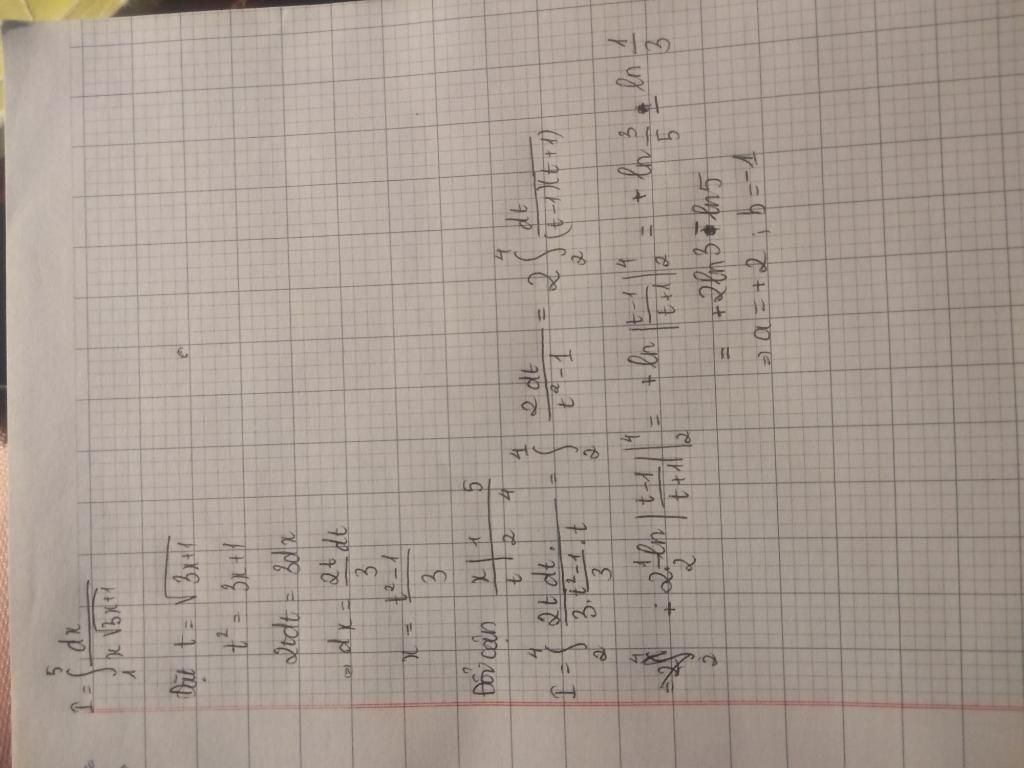 I = ∫₁⁵ dx / (x√(3x+1))
Đặt t = √(3x+1)
t² = 3x+1
2tdt = 3dx
dx = 2t/3 dt
x = (t²-1)/3
Đổi cận x | 1 5
t | 2 4
I = ∫₂⁴ 2t dt / (3·(t²-1)/3·t) = ∫₂⁴ 2dt/(t²-1) = 2∫₂⁴ dt/((t-1)(t+1))
= +2·1/2 ln|(t-1)/(t+1)| |₂⁴ = + ln|(t-1)/(t+1)| |₂⁴ = + ln 3/5 - ln 1/3
= +2ln3 - ln5
⇒ a = +2 ; b = -1